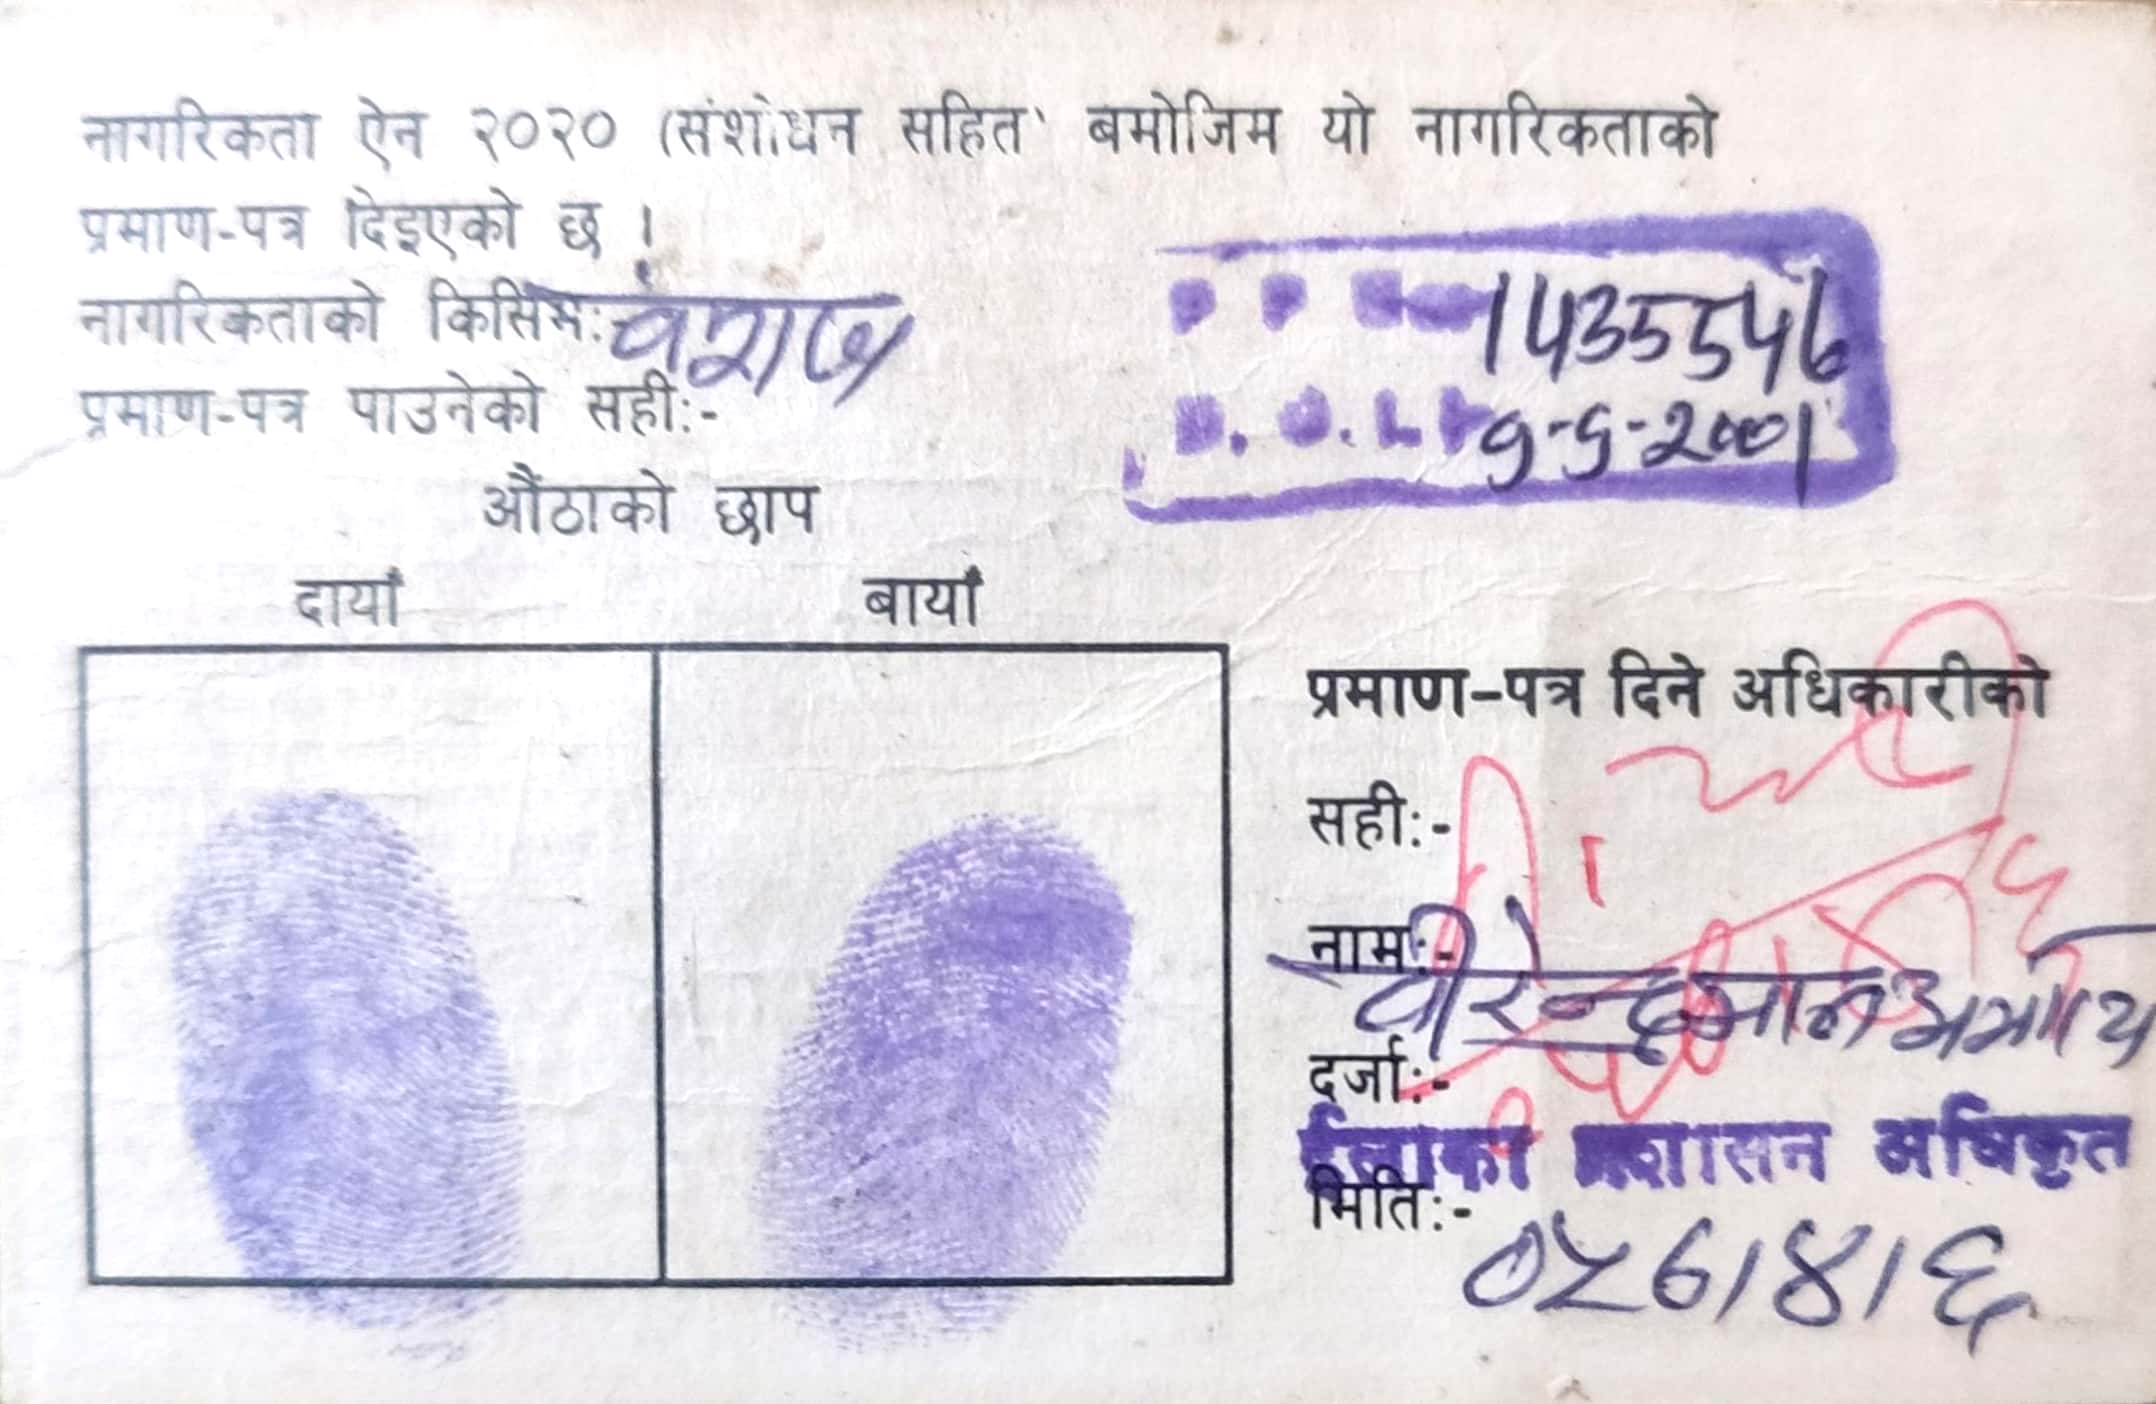 नागरिकता ऐन २०२० (संशोधन सहित) बमोजिम यो नागरिकताको
प्रमाण-पत्र दिइएको छ ।
नागरिकताको किसिम: वंशज
P P No 1435546
D. O. I. 9-5-2001
प्रमाण-पत्र पाउनेको सही:-
औंठाको छाप
दायाँ बायाँ
प्रमाण-पत्र दिने अधिकारीको
सही:-
नाम:-
वीरेन्द्रमान
दर्जा:-
ईलाका प्रशासन अधिकृत
मिति:-
०५७/४/६